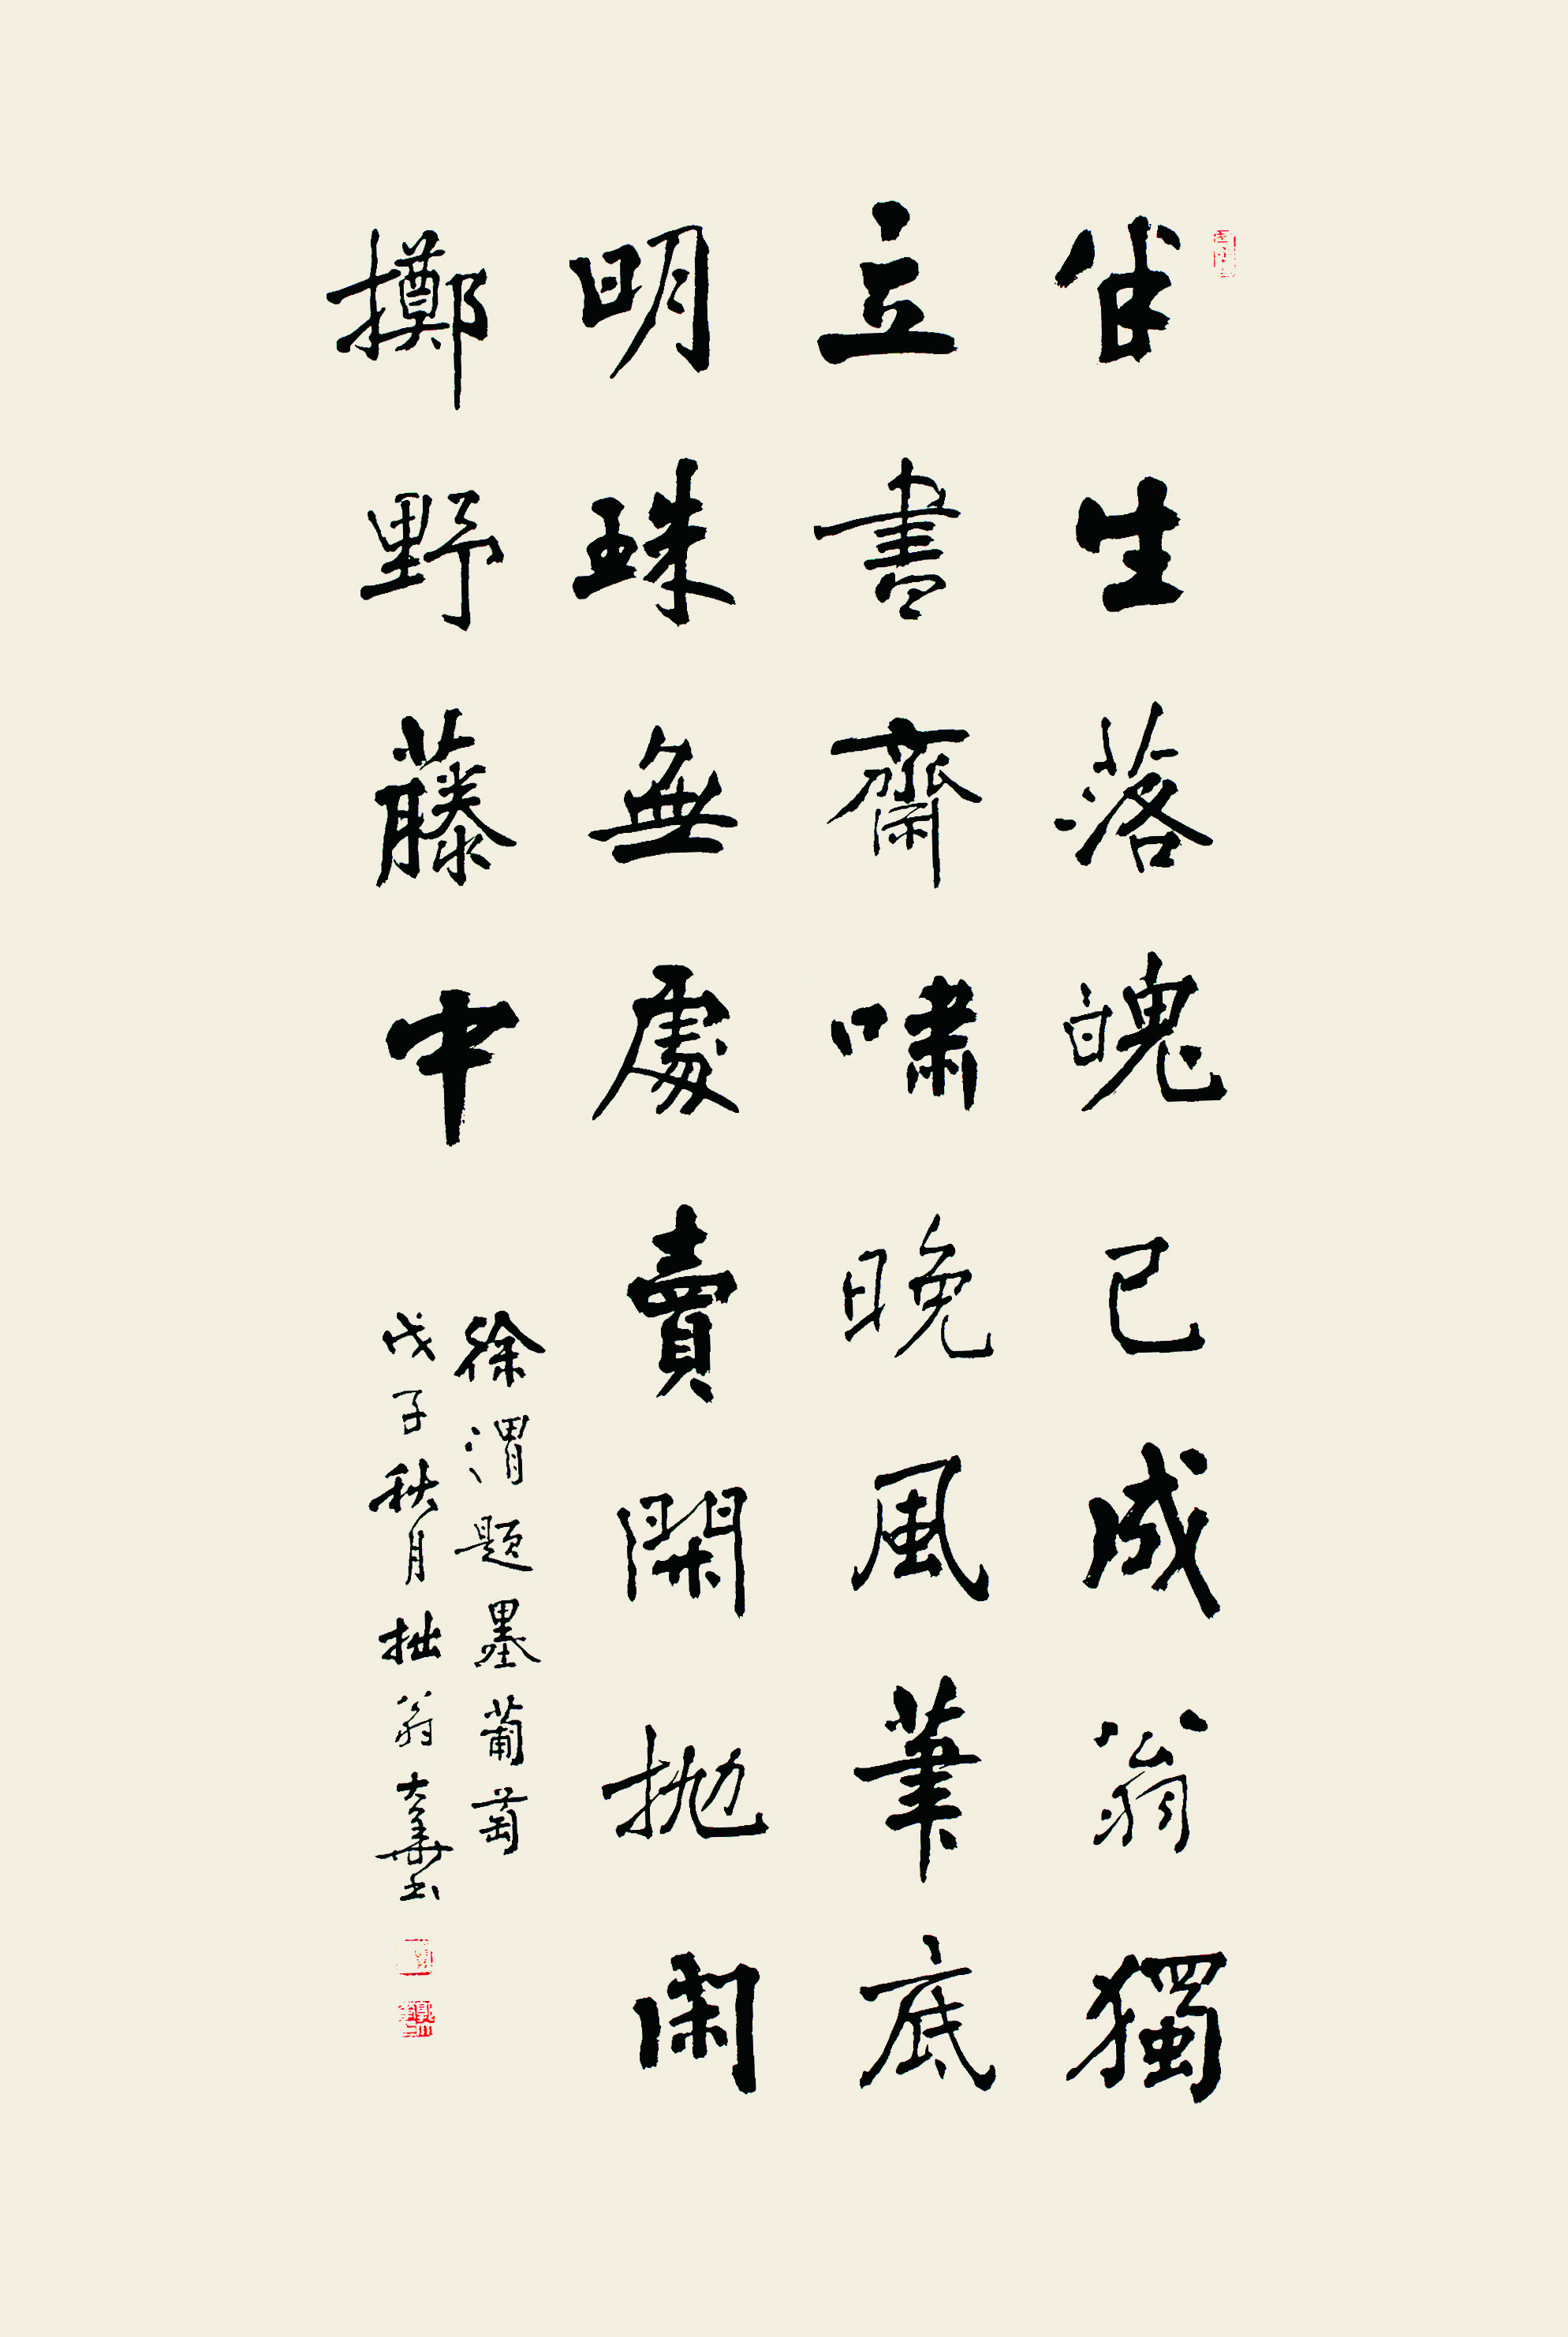 半生落魄已成翁獨
立書齋嘯晚風筆底
明珠無處賣閑拋閑
擲野藤中
徐渭題墨葡萄
戊子秋月拙翁